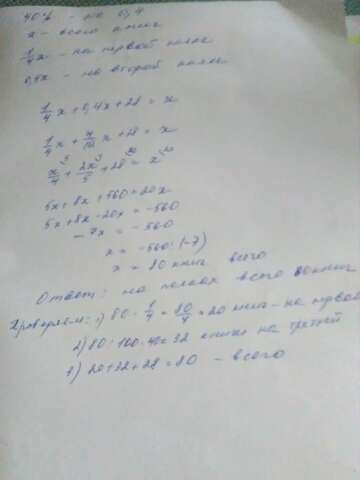 40% - это 0,4
x - всего книг
1/4 x - на первой полке
0,4x - на второй полке
1/4 x + 0,4x + 28 = x
1/4 x + 4/10 x + 28 = x
x/4 + 2x/5 + 28 = x
5x + 8x + 560 = 20x
5x + 8x - 20x = -560
-7x = -560
x = -560 : (-7)
x = 80 книг всего
Ответ: на полках всего 80 книг
Проверяем: 1) 80 · 1/4 = 80/4 = 20 книг - на первой
2) 80 : 100 · 40 = 32 книги на третий
3) 20 + 32 + 28 = 80 - всего